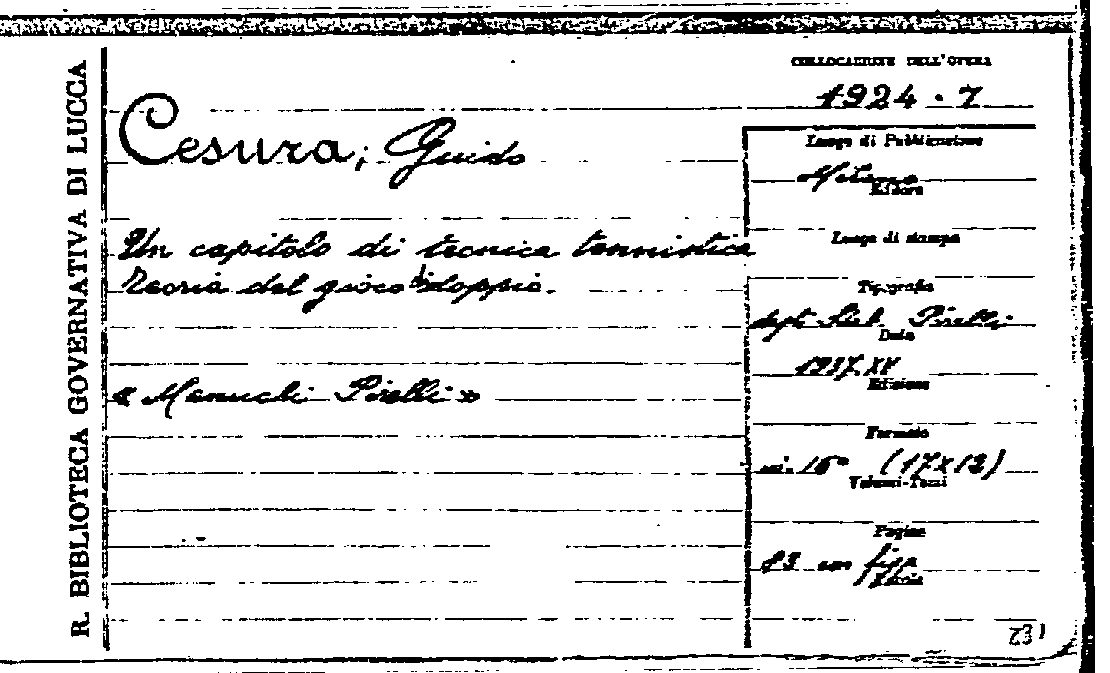 R. BIBLIOTECA GOVERNATIVA DI LUCCA
COLLOCAZIONE DELL'OPERA
1924 . 7
Cesura, Guido
Un capitolo di tecnica tennistica
Teoria del gioco di doppio.
« Manuali Pirelli »
Luogo di Pubblicazione
Milano
Editore
Luogo di stampa
Tipografia
Stab. Pirelli
Data
1937.XV
Edizione
Formato
in. 16° (17x12)
Volumi-Tomi
Pagine
83 con figg.